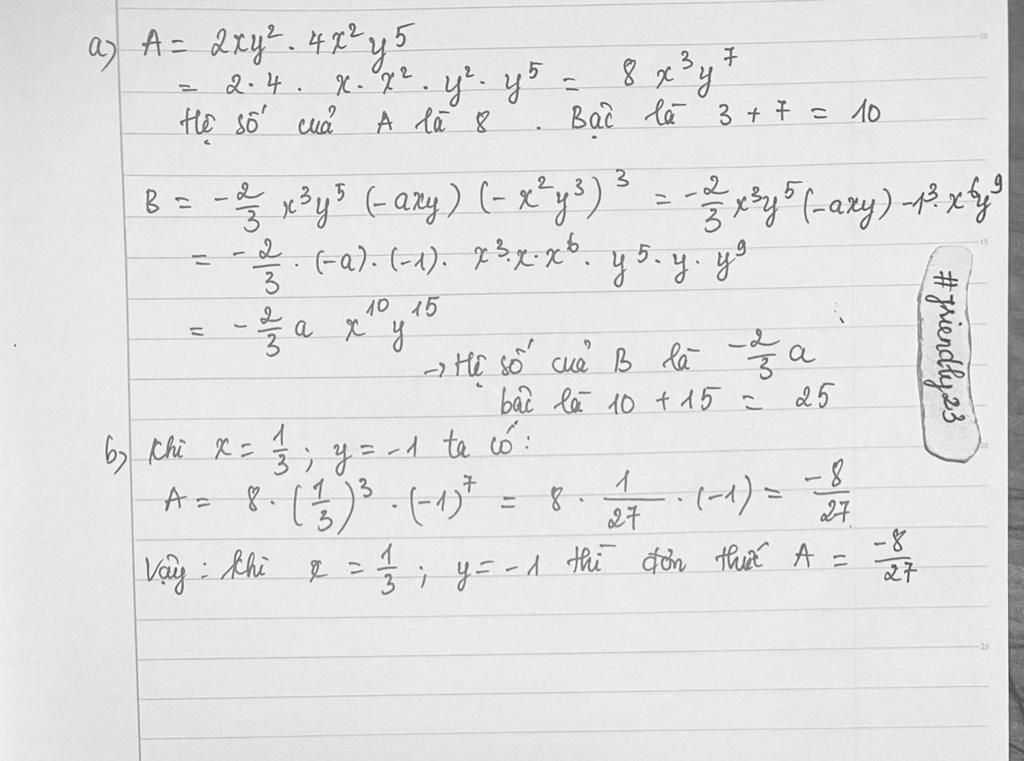 a) A = 2xy² · 4x²y⁵
= 2 · 4 · x · x² · y² · y⁵ = 8x³y⁷
Hệ số cuả A là 8 . Bậc là 3 + 7 = 10
B = -2/3 x³y⁵ (-axy) (-x²y³)³ = -2/3 x³y⁵ (-axy) -1³· x⁶y⁹
= -2/3 · (-a) · (-1) · x³·x·x⁶ · y⁵·y·y⁹
= -2/3 a x¹⁰y¹⁵
→ Hệ số cuả B là -2/3 a
bậc là 10 + 15 = 25
b) khi x = 1/3 ; y = -1 ta có :
A = 8 · (1/3)³ · (-1)⁷ = 8 · 1/27 · (-1) = -8/27
Vậy : khi x = 1/3 ; y = -1 thì đơn thức A = -8/27
#friendly23